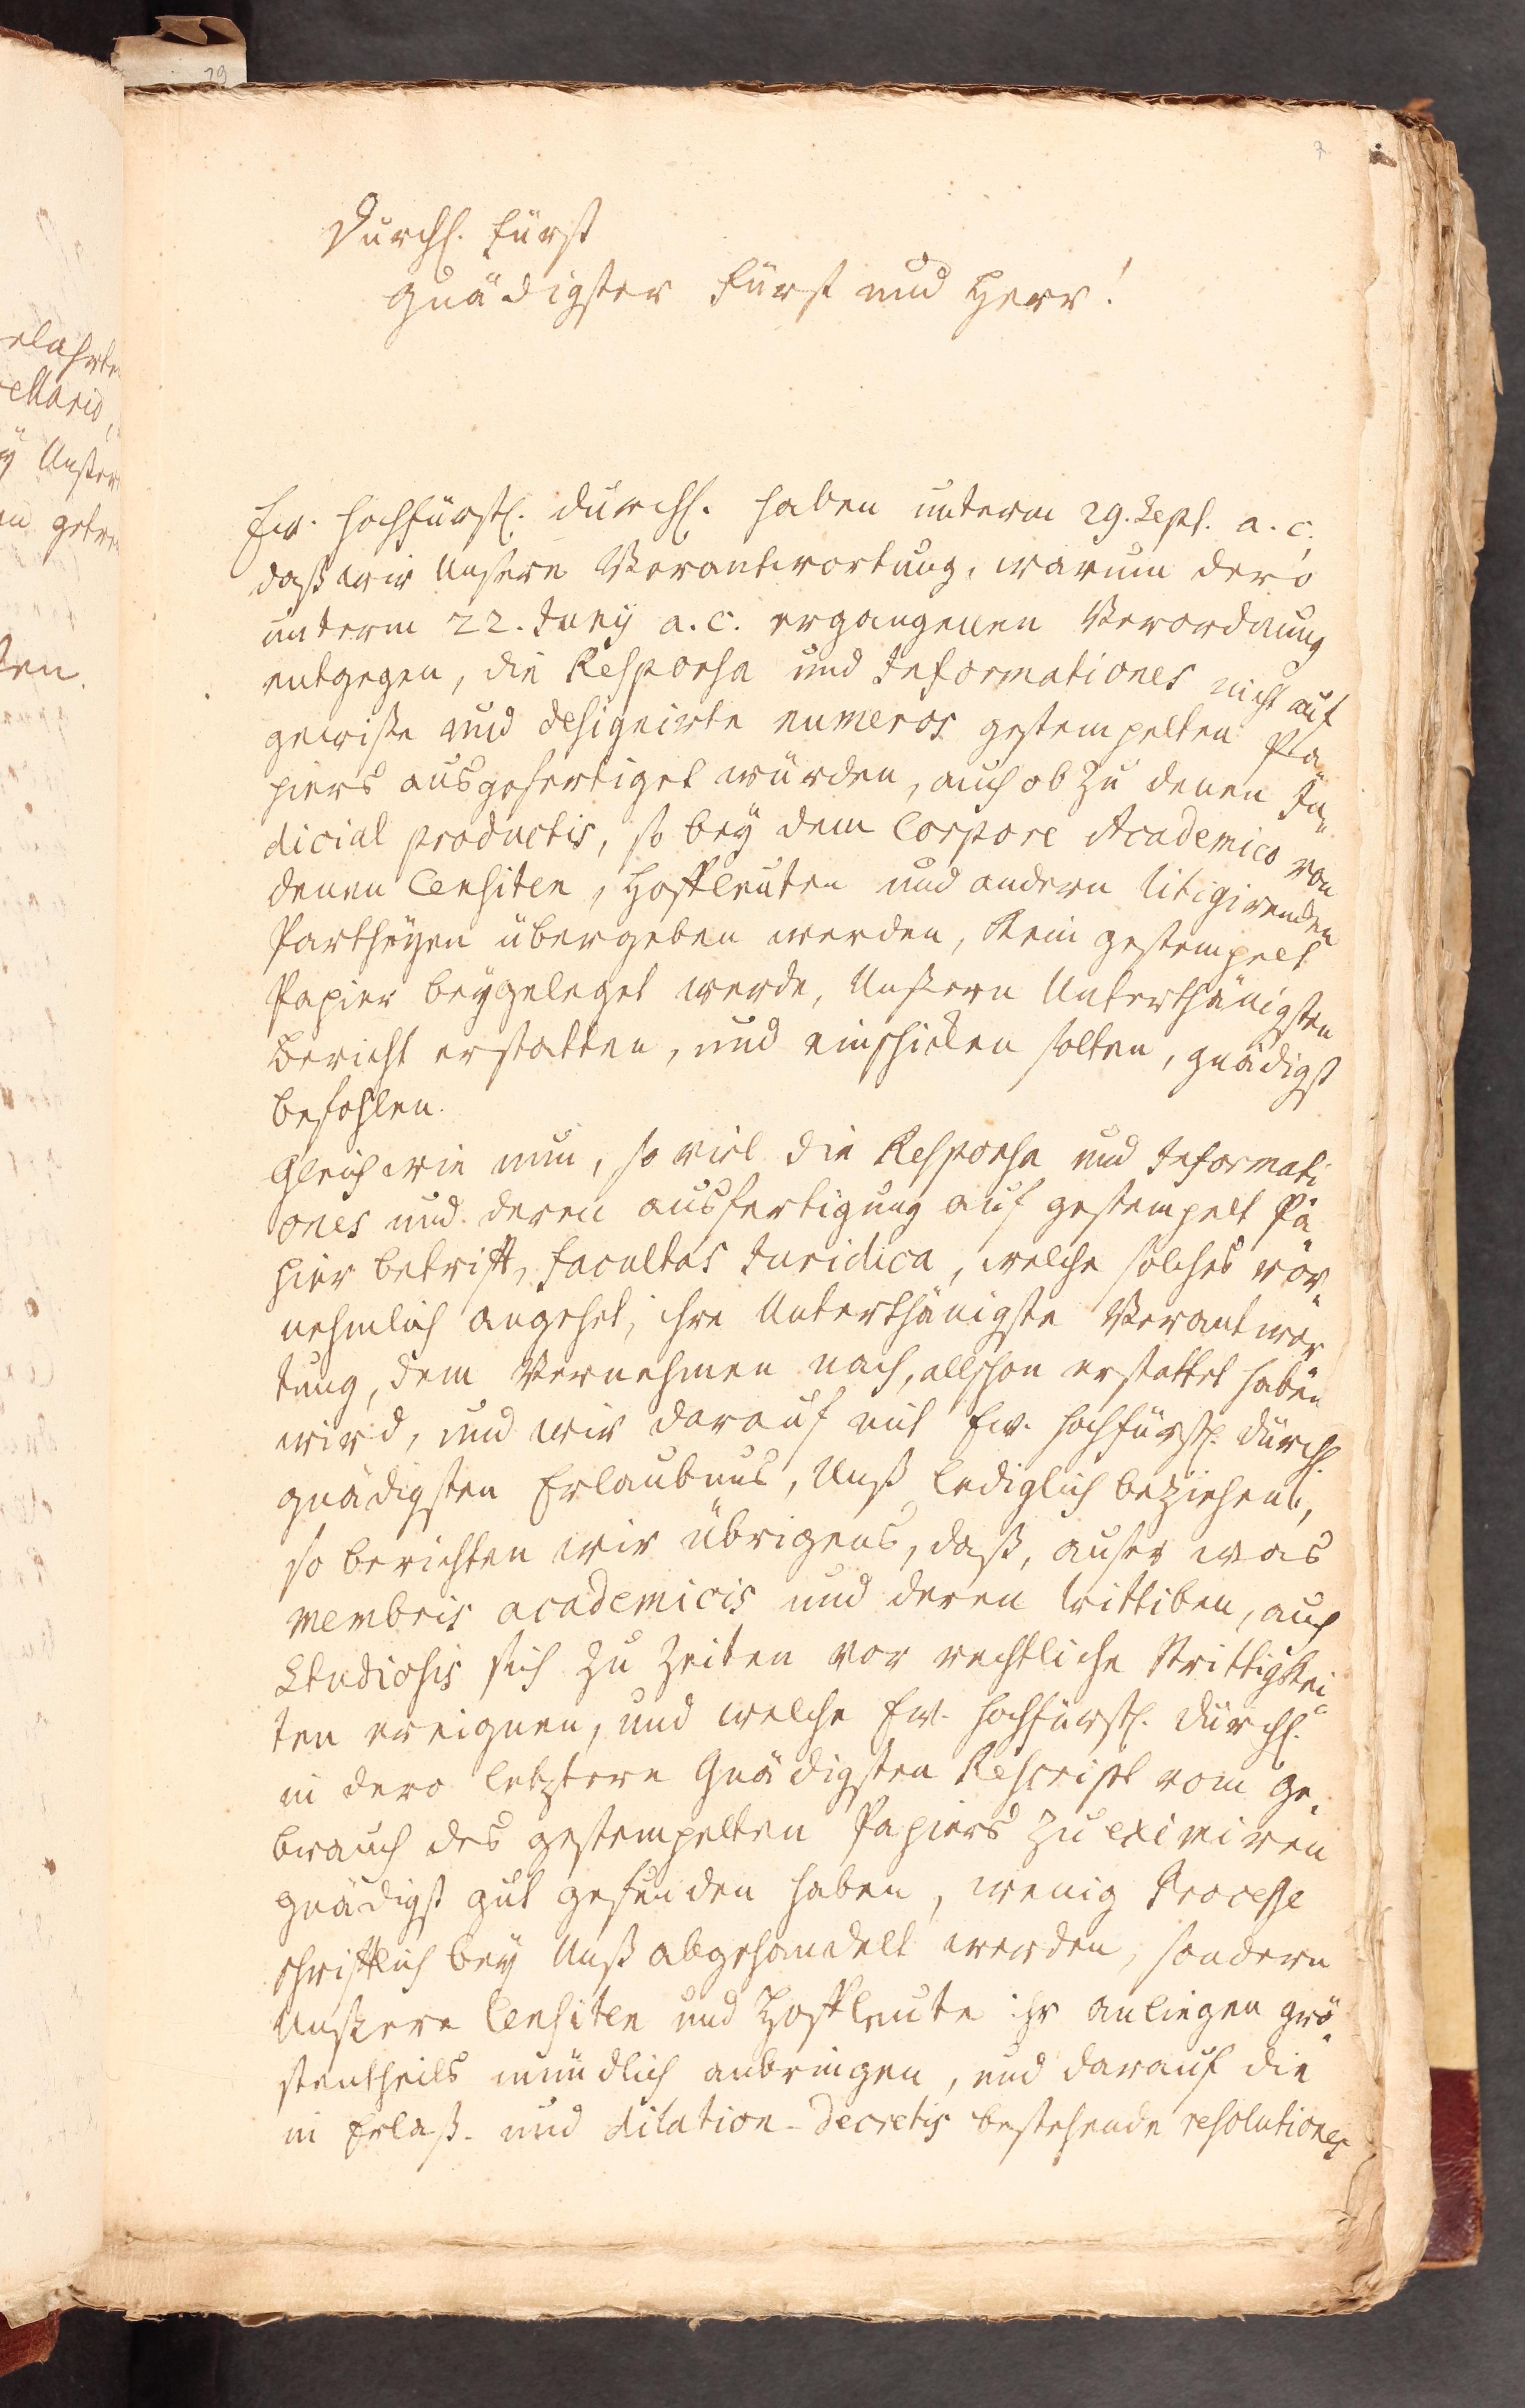 29
7
Durchl. Fürst
gnädigster Fürst und Herr!
Ew. hochfürstl. Durchl. haben unterm 29. Sept. a. c.
daß wir Unsere Verantwortung, warum dero
unterm 22. Juny a. c. ergangenen Verordnung
entgegen, die Responsa und Informationes nicht auf
gewiße und designirte numeros gestempelten Pa-
piers ausgefertiget würden, auch ob zu denen Ju-
dicial productis, so bey dem Corpore Academico von
denen Censiten, Hoffleuten und andern litigirenden
Partheyen übergeben werden, kein gestempelt
Papier beygeleget werde, Unßern Unterthänigsten
Bericht erstatten, und einschicken solten, gnädigst
befohlen.
Gleich wie nun, so viel die Responsa und Informati
ones und deren ausfertigung auf gestempelt Pa-
pier betrifft, Facultas Juridica, welche solches vor-
nehmlich angehet, ihre Unterthänigste Verantwor-
tung, dem Vernehmen nach, allschon erstattet haben
wird, und wir darauf mit Ew. hochfürstl. Durchl.
gnädigsten Erlaubnus, Unß lediglich beziehen,
so berichten wir übrigens, daß, auser was
membris academicis und deren Wittiben, auch
Studiosis sich zu Zeiten vor rechtliche Strittigkei-
ten ereignen, und welche Ew. hochfürstl. Durchl.
in dero letztern Gnädigsten Rescript vom ge-
brauch des gestempelten Papiers zu eximiren
gnädigst gut gefunden haben, wenig Processe
schrifftlich bey Unß abgehandelt werden, sondern
Unßere Censiten und Hoffleute ihr anliegen grö-
stentheils mündlich anbringen, und darauf die
in Erlaß- und dilation-Decretis bestehende resolutiones
elahrte
ellario,
y Unßer
en getre
ten.